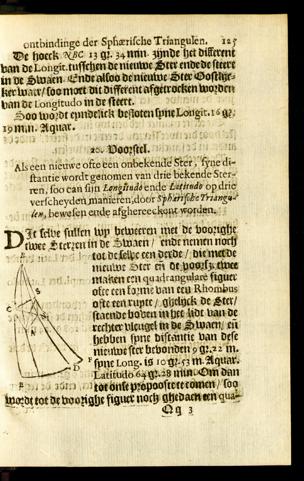 ontbindinge der Sphærische Triangulen. 125
De hoeck NBC 13 gr. 34 min. zijnde het different
van de Longit. tusschen de nieuwe Ster ende de steert
in de Swaen. Ende alsoo de nieuwe Ster Oostlijc-
ker waer / soo moet dit different afgetrocken worden
van de Longitudo in de steert.
Soo wordt eyndelick besloten syne Longit. 16 gr.
19 min. Aquar.
20. Voorstel.
Als een nieuwe ofte een onbekende Ster, syne di-
stantie wordt genomen van drie bekende Ster-
ren, soo can sijn Longitudo ende Latitudo op drie
verscheyden manieren, door Sphærische Triangu-
len, bewesen ende afghereeckent worden.
Dit selve sullen wy bewieren met de voorighe
twee Sterren in de Swaen / ende nemen noch
tot de selve een derde / die met de
nieuwe Ster en de voorsz. twee
maken een quadrangulare figuer
ofte een forme van een Rhombus
ofte een rupte / ghelijck de Ster /
staende boven in het lidt van de
rechter vleugel in de Swaen / en
hebben syne distantie van dese
nieuwe ster bevonden 9 gr. 22 m.
syne Long. is 10 gr. 53 m. Aquar.
Latitudo 64 gr. 28 min. Om dan
tot onse propooste te comen / soo
wordt tot de voorighe figuer noch ghedaen een qua-
Qq 3
S
C
D
F